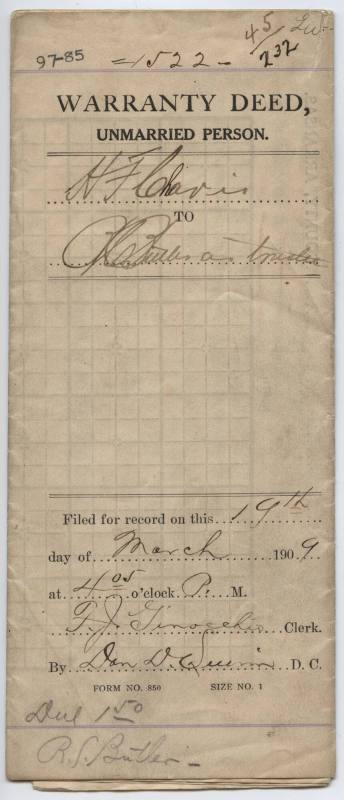 45/232
97-85
1522
WARRANTY DEED,
UNMARRIED PERSON.
H F Chavis
TO
R S Butler as trustee
Filed for record on this 19th
day of March 1909
at 4 05 o'clock P. M.
F. J. Ginocchio Clerk.
By Dan D. Quinn D. C.
FORM NO. 850 SIZE NO. 1
Due 1 50
R. S. Butler